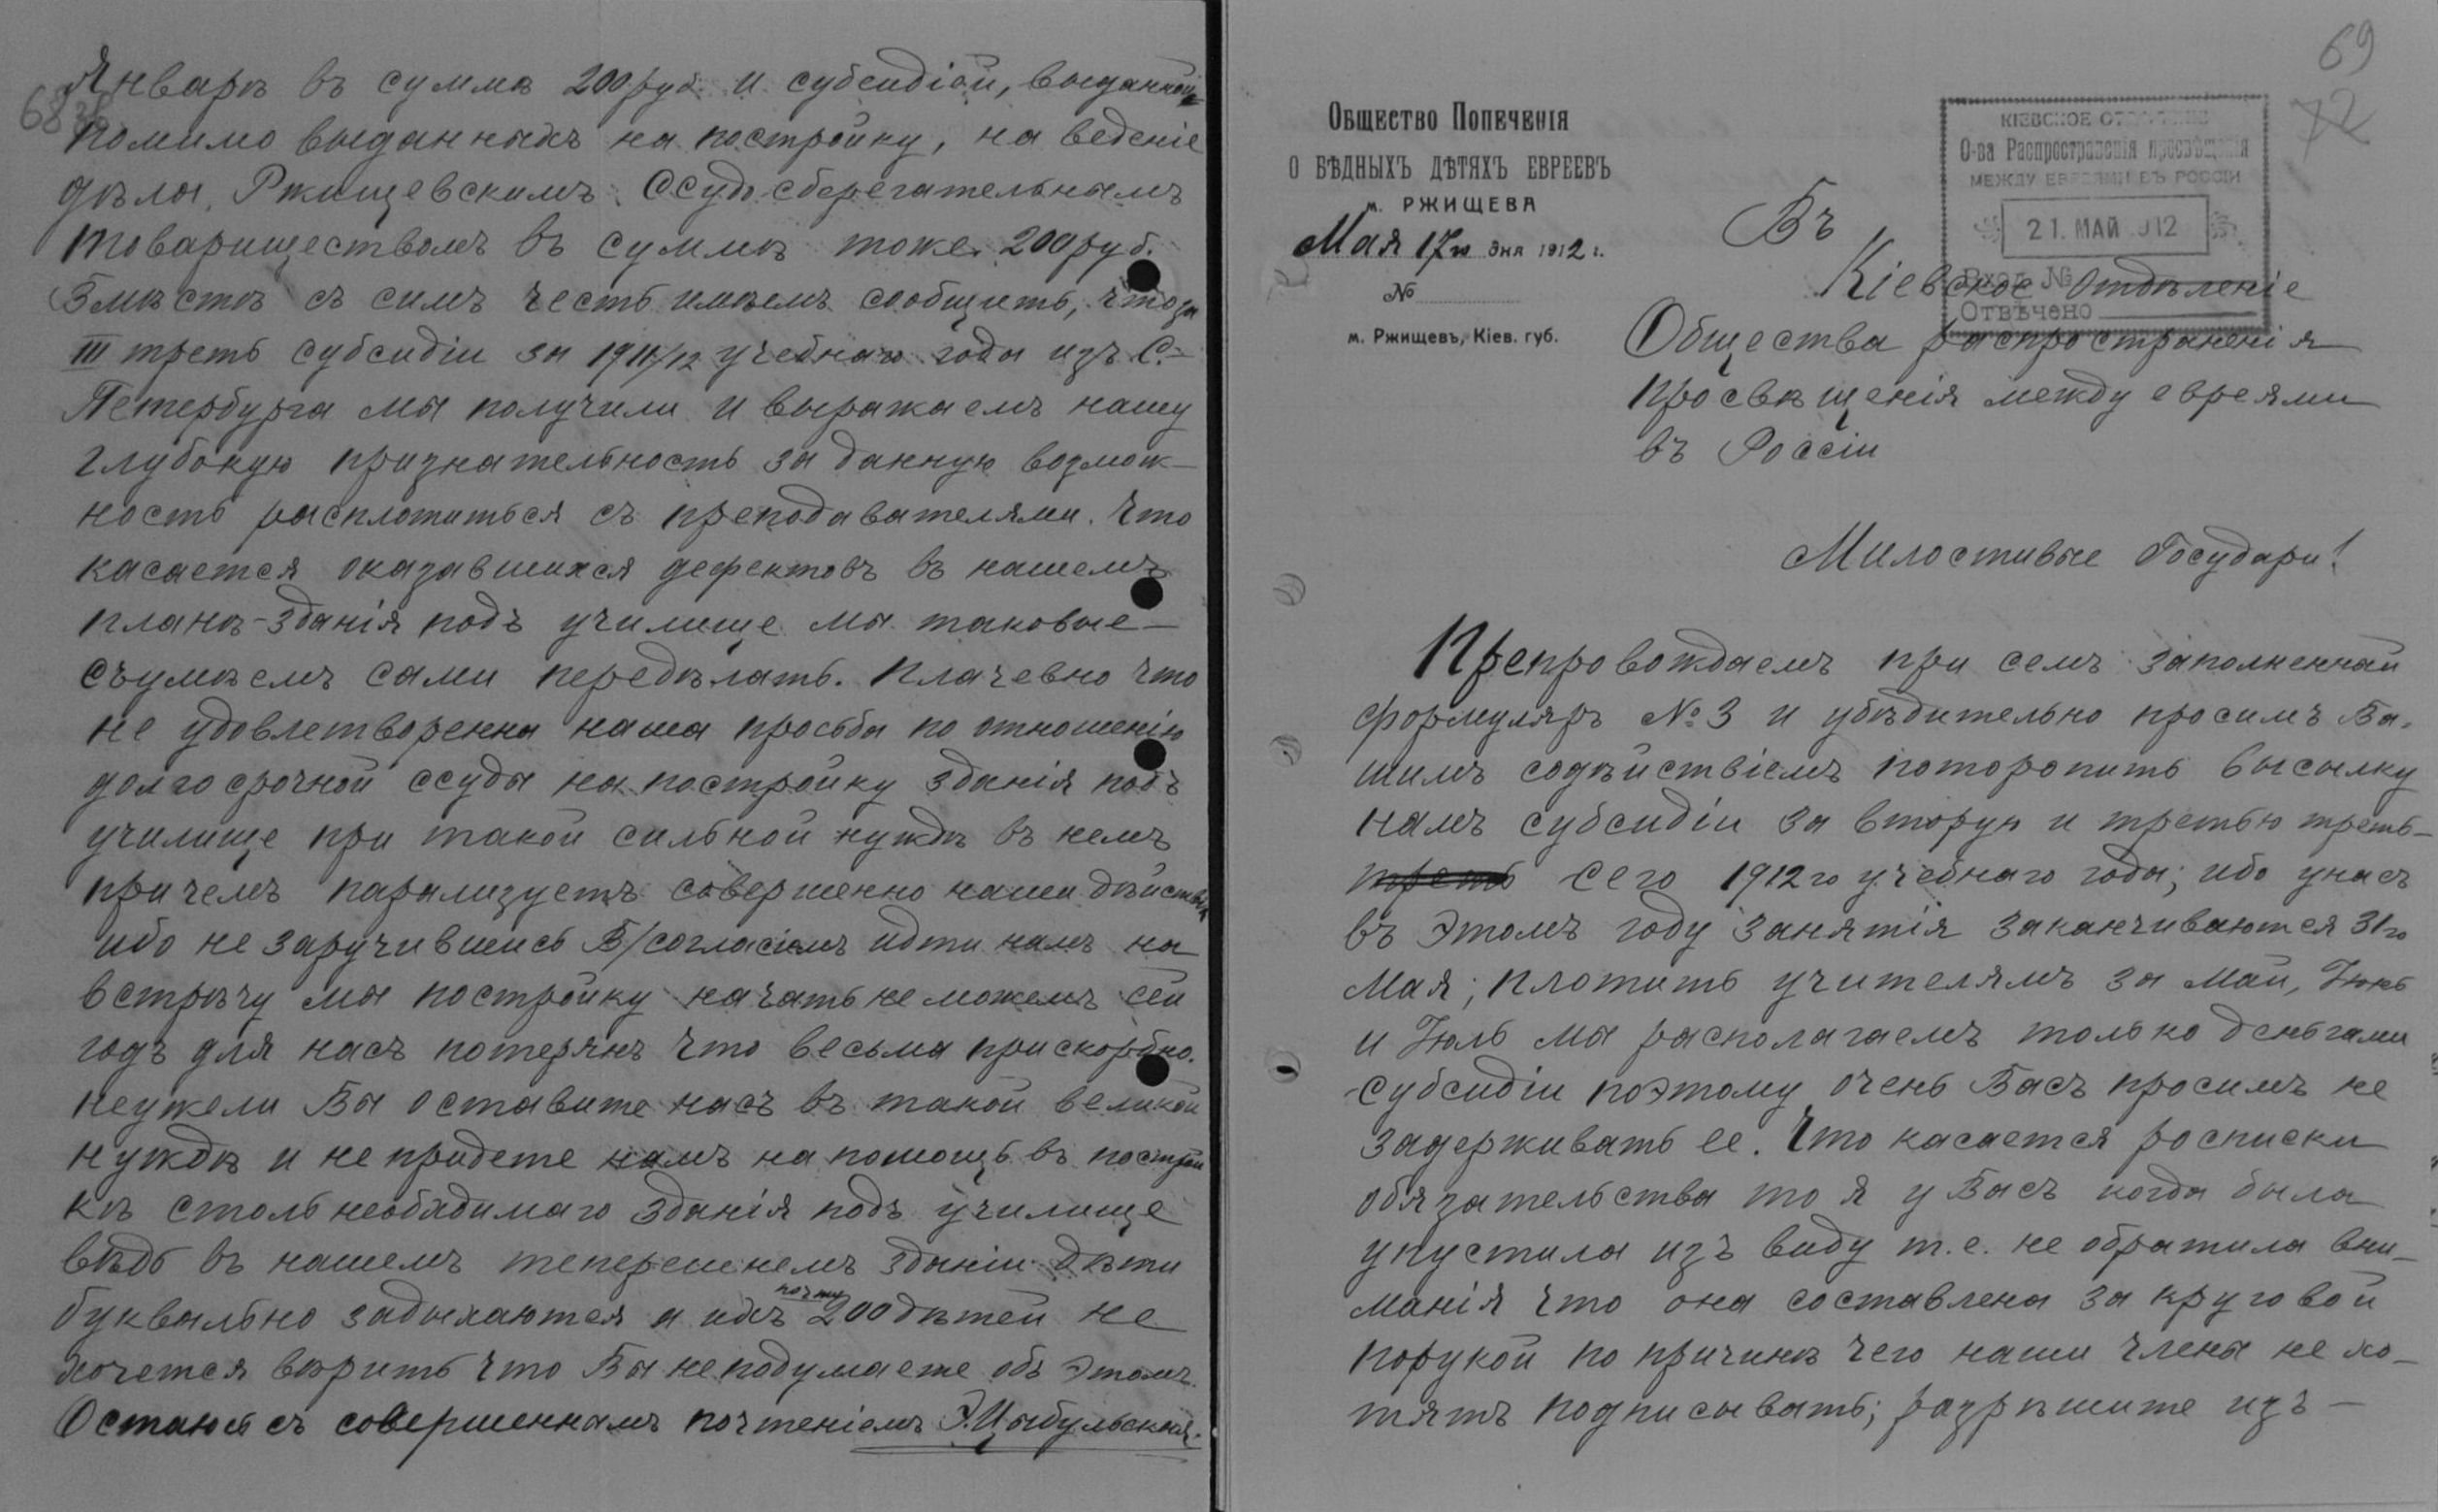 68 об
Январѣ въ суммѣ 200 руб. и субсидіей, выданной
помимо выданныхъ на постройку, на веденіе
дѣла, Ржищевскимъ Ссудо сберегательнымъ
товариществомъ въ суммѣ тоже 200 руб.
Вмѣстѣ съ симъ честь имѣемъ сообщить, что за
III треть субсидіи за 1911/12 учебнаго года изъ С.-
Петербурга мы получили и выражаемъ нашу
глубокую признательность за данную возмож-
ность расплотиться съ преподавателями. Что
касается оказавшихся дефектовъ въ нашемъ
планѣ-зданія подъ училище мы таковые-
съумѣемъ сами передѣлать. Плачевно что
не удовлетворенна наша просьба по отношенію
долгосрочной ссуды на постройку зданія подъ
училище при такой сильной нуждѣ въ немъ
причемъ парализуетъ совершенно наши дѣйствія
ибо не заручившись В/согласіемъ идти намъ на
встрѣчу мы постройку начать не можемъ сей
годъ для насъ потерянъ что весьма прискорбно.
неужели Вы оставите насъ въ такой великой
нуждѣ и не придете намъ на помощь въ построй
кѣ столь необходимаго зданія подъ училище
вѣдь въ нашемъ теперешнемъ зданіи дѣти
буквально задыхаются а ихъ почти 200 дѣтей не
хочется вѣрить что Вы не подумаете объ этомъ.
Остаюсь съ совершеннымъ почтеніемъ Э. Цыбульская.
69
72
Общество Попеченія
О БѢДНЫХЪ ДѢТЯХЪ ЕВРЕЕВЪ
м. РЖИЩЕВА
Мая 17го дня 1912 г.
№
м. Ржищевъ, Кіев. губ.
КІЕВСКОЕ ОТДѢЛЕНІЕ
О-ва Распространенія просвѣщенія
МЕЖДУ ЕВРЕЯМИ ВЪ РОССІИ
21. МАЙ 912
Вход. №
Отвѣчено
Въ
Кіевское Отдѣленіе
Общества распространенія
просвѣщенія между евреями
въ Россіи
Милостивые Государи!
Препровождаемъ при семъ заполненный
формуляръ № 3 и убѣдительно просимъ Ва-
шимъ содѣйствіемъ поторопить высылку
намъ субсидіи за вторую и третью треть-
треть сего 1912го учебнаго года; ибо у насъ
въ этомъ году занятія заканчиваются 31го
Мая; плотить учителямъ за Май, Іюнь
и Іюль мы располагаемъ только деньгами
субсидіи поэтому очень Васъ просимъ не
задерживать ее. Что касается росписки
обязательства то я у Васъ когда была
упустила изъ виду т.е. не обратила вни-
манія что она составлена за круговой
порукой по причинѣ чего наши члены не хо-
тятъ подписывать; разрѣшите изъ-